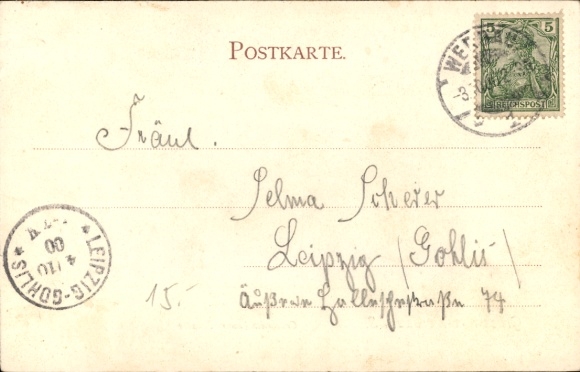 POSTKARTE.
5 5
REICHSPOST
Fräul.
Selma Scheder
Leipzig (Gohlis)
Äußere Hallesche Straße 74
15.-
LEIPZIG-GOHLIS
4/10
00